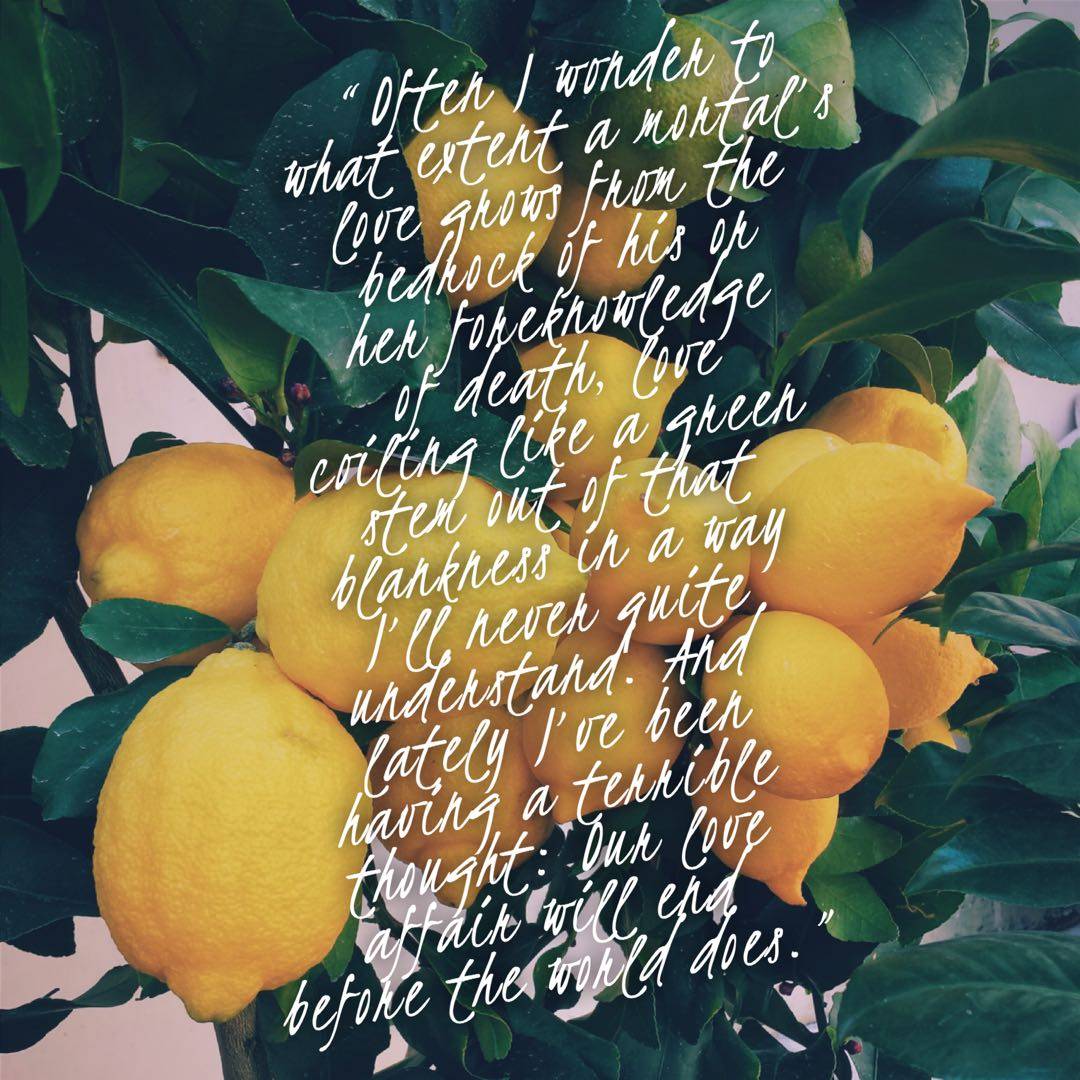 “Often I wonder to
what extent a mortal's
love grows from the
bedrock of his or
her foreknowledge
of death, love
coiling like a green
stem out of that
blankness in a way
I'll never quite
understand. And
lately I've been
having a terrible
thought: Our love
affair will end
before the world does.”